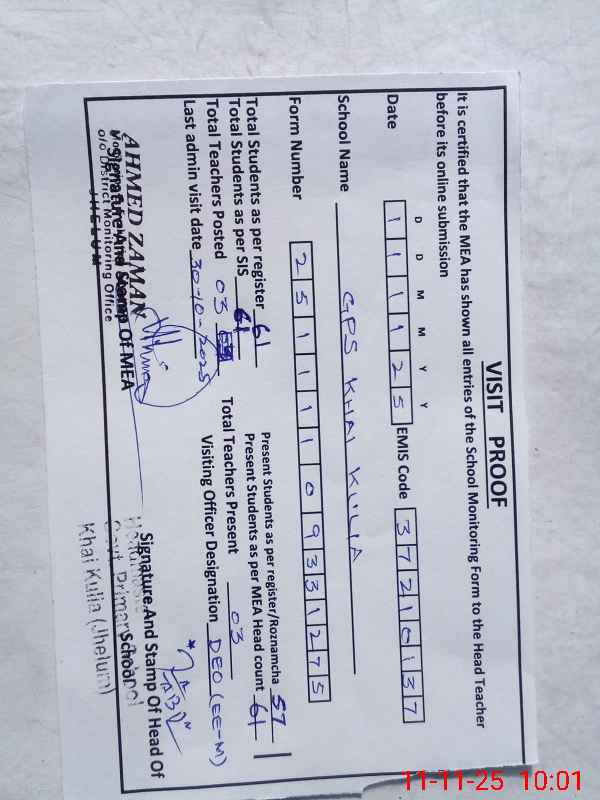 VISIT PROOF
It is certified that the MEA has shown all entries of the School Monitoring Form to the Head Teacher
before its online submission
D D M M Y Y
Date 1 1 1 1 2 5 EMIS Code 3 7 2 1 0 1 3 7
School Name GPS KHAI KULIA
Form Number 2 5 1 1 1 1 0 9 3 3 1 2 7 5
Total Students as per register 61 Present Students as per register/Roznamcha 57
Total Students as per SIS 61 Present Students as per MEA Head count 61
Total Teachers Posted 03 Total Teachers Present 03
Last admin visit date 30-10-2025 Visiting Officer Designation DEO (EE-M)
AHMED ZAMAN
Signature And Stamp Of MEA
o/o District Monitoring Office
JHELUM
Signature And Stamp Of Head Of
School
Govt. Primary School
Khai Kulia (Jhelum)
11-11-25 10:01